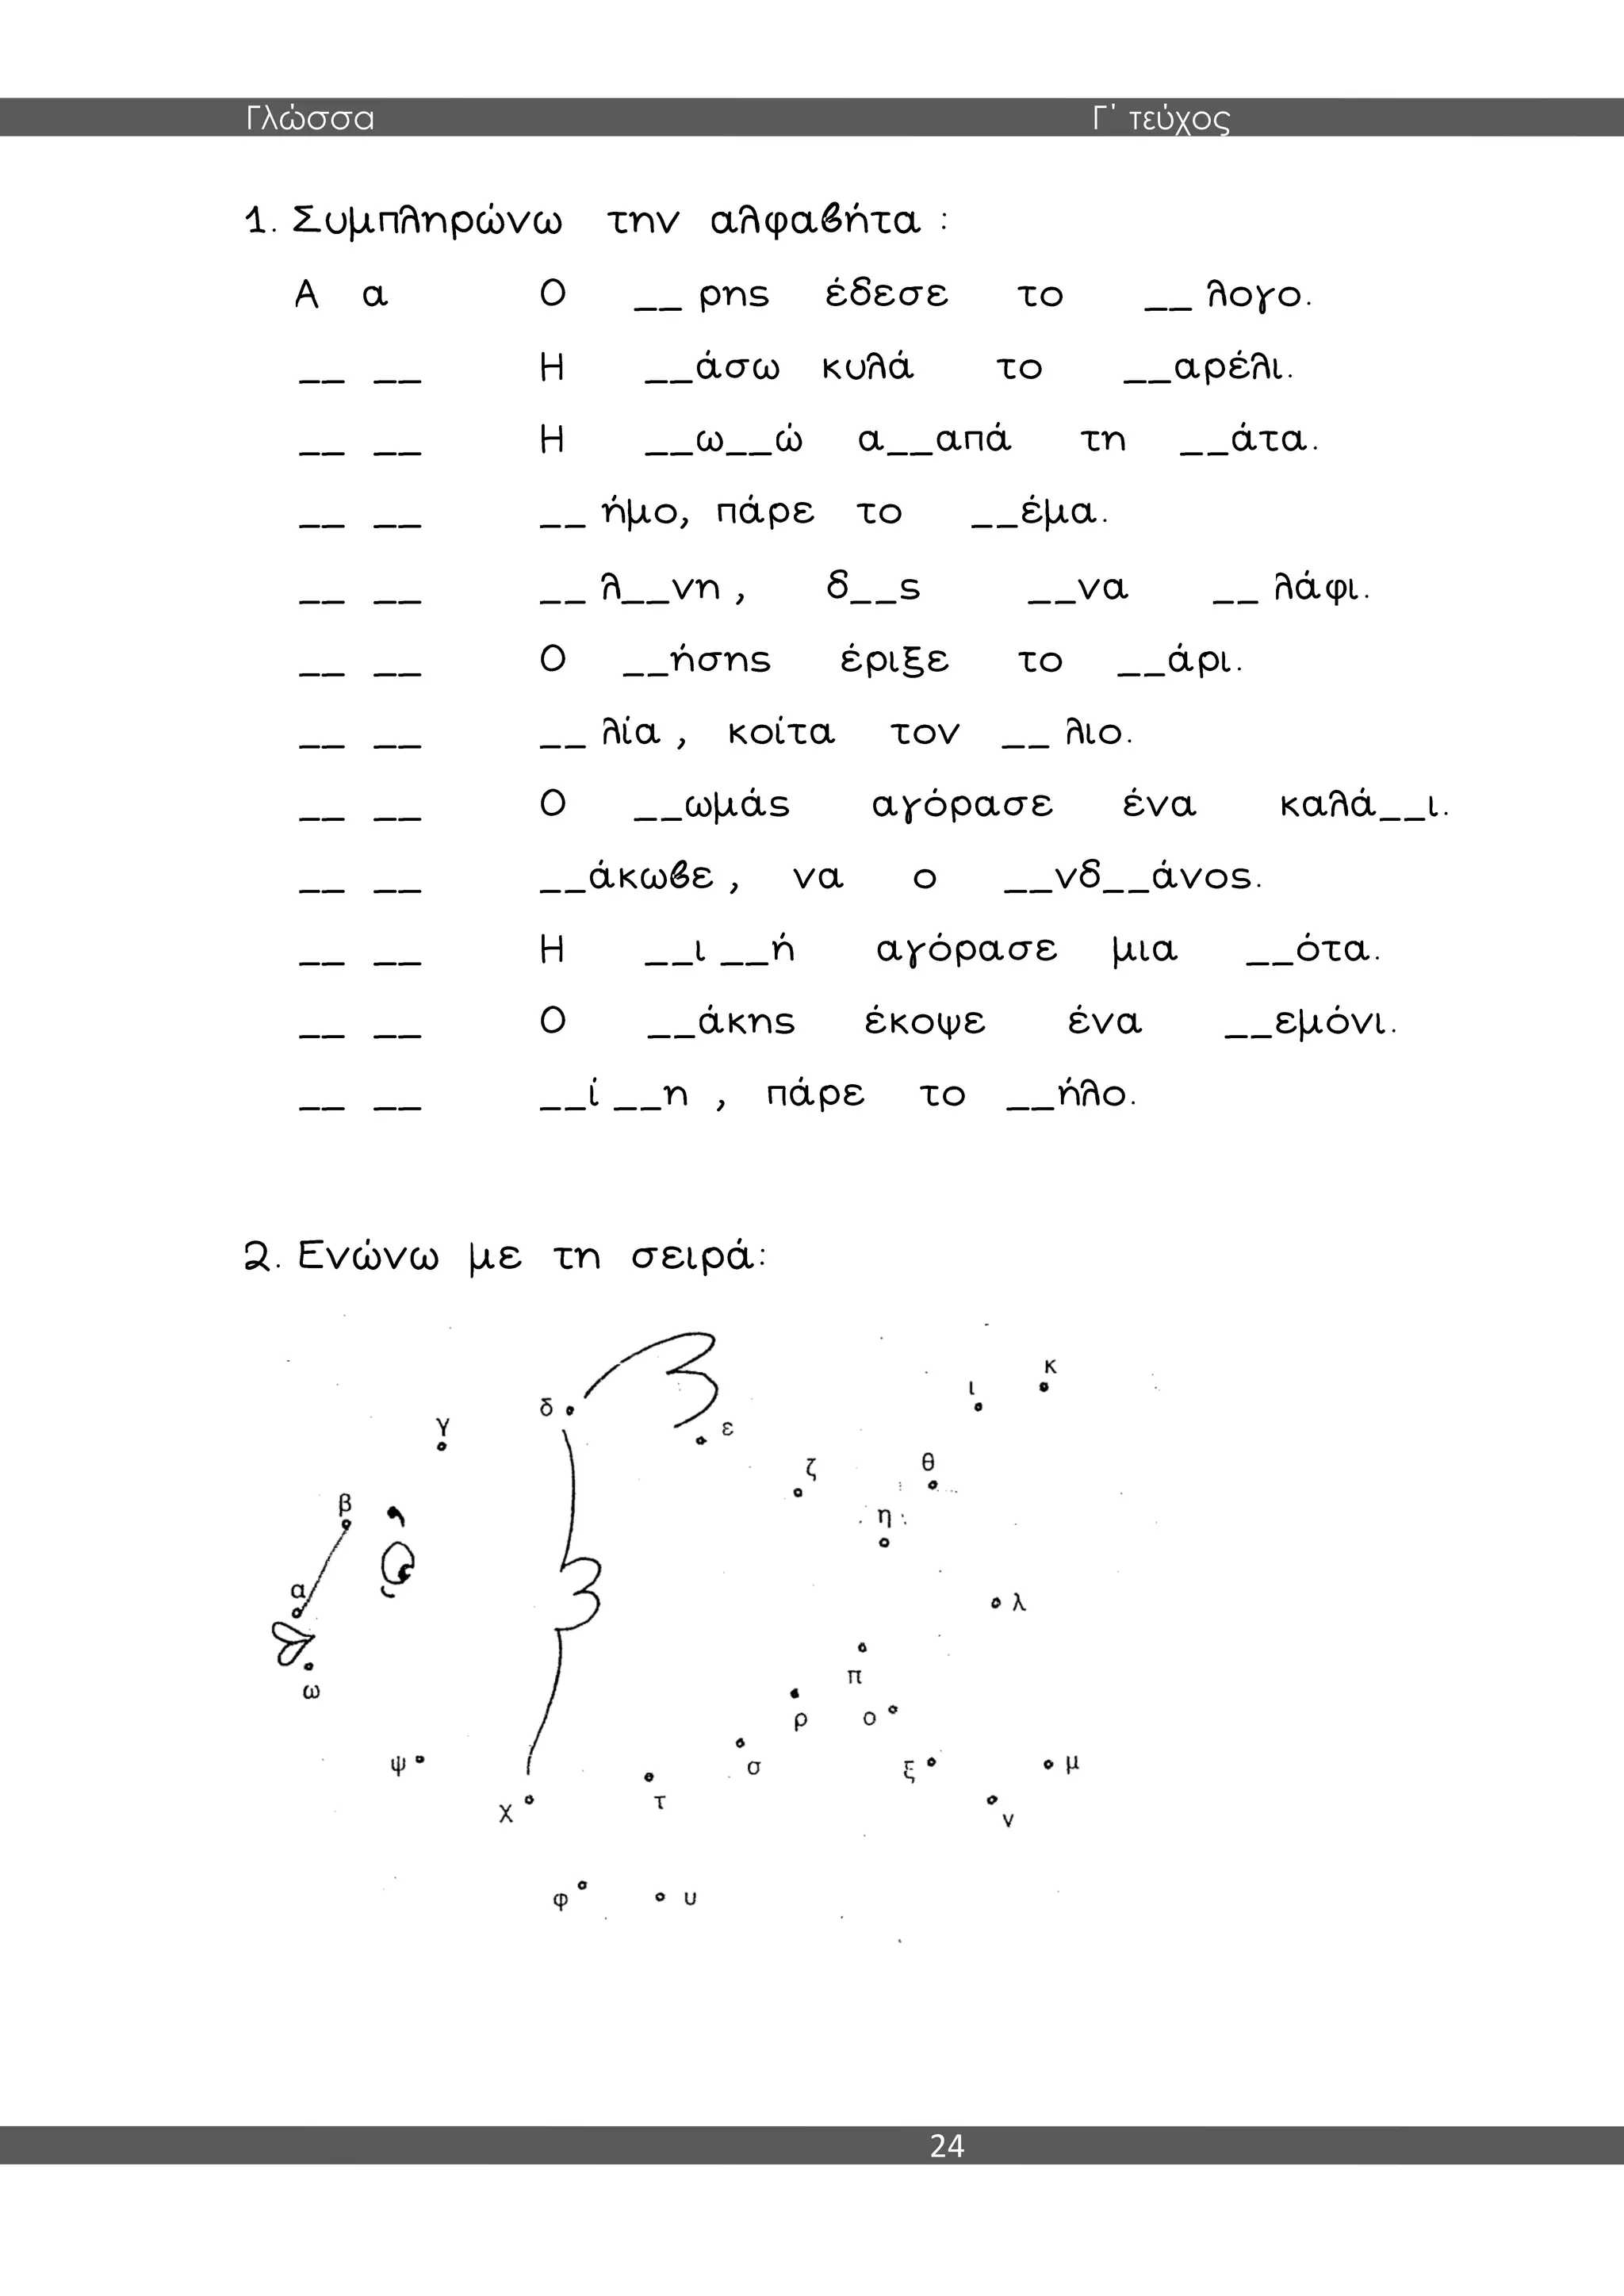 Γλώσσα Γ΄ τεύχος
1. Συμπληρώνω την αλφαβήτα :
Α α Ο __ ρης έδεσε το __ λογο.
__ __ Η __άσω κυλά το __αρέλι.
__ __ Η __ω__ώ α__απά τη __άτα.
__ __ __ ήμο, πάρε το __έμα.
__ __ __ λ__νη , δ__ς __να __ λάφι.
__ __ Ο __ήσης έριξε το __άρι.
__ __ __ λία , κοίτα τον __ λιο.
__ __ Ο __ωμάς αγόρασε ένα καλά__ι.
__ __ __άκωβε , να ο __νδ__άνος.
__ __ Η __ι __ή αγόρασε μια __ότα.
__ __ Ο __άκης έκοψε ένα __εμόνι.
__ __ __ί __η , πάρε το __ήλο.
2. Ενώνω με τη σειρά:
κ
ι
δ
γ
ε
ζ
θ
β
η
α
λ
π
ω
ρ
ο
ψ
σ
ξ
μ
χ
τ
ν
φ
υ
24